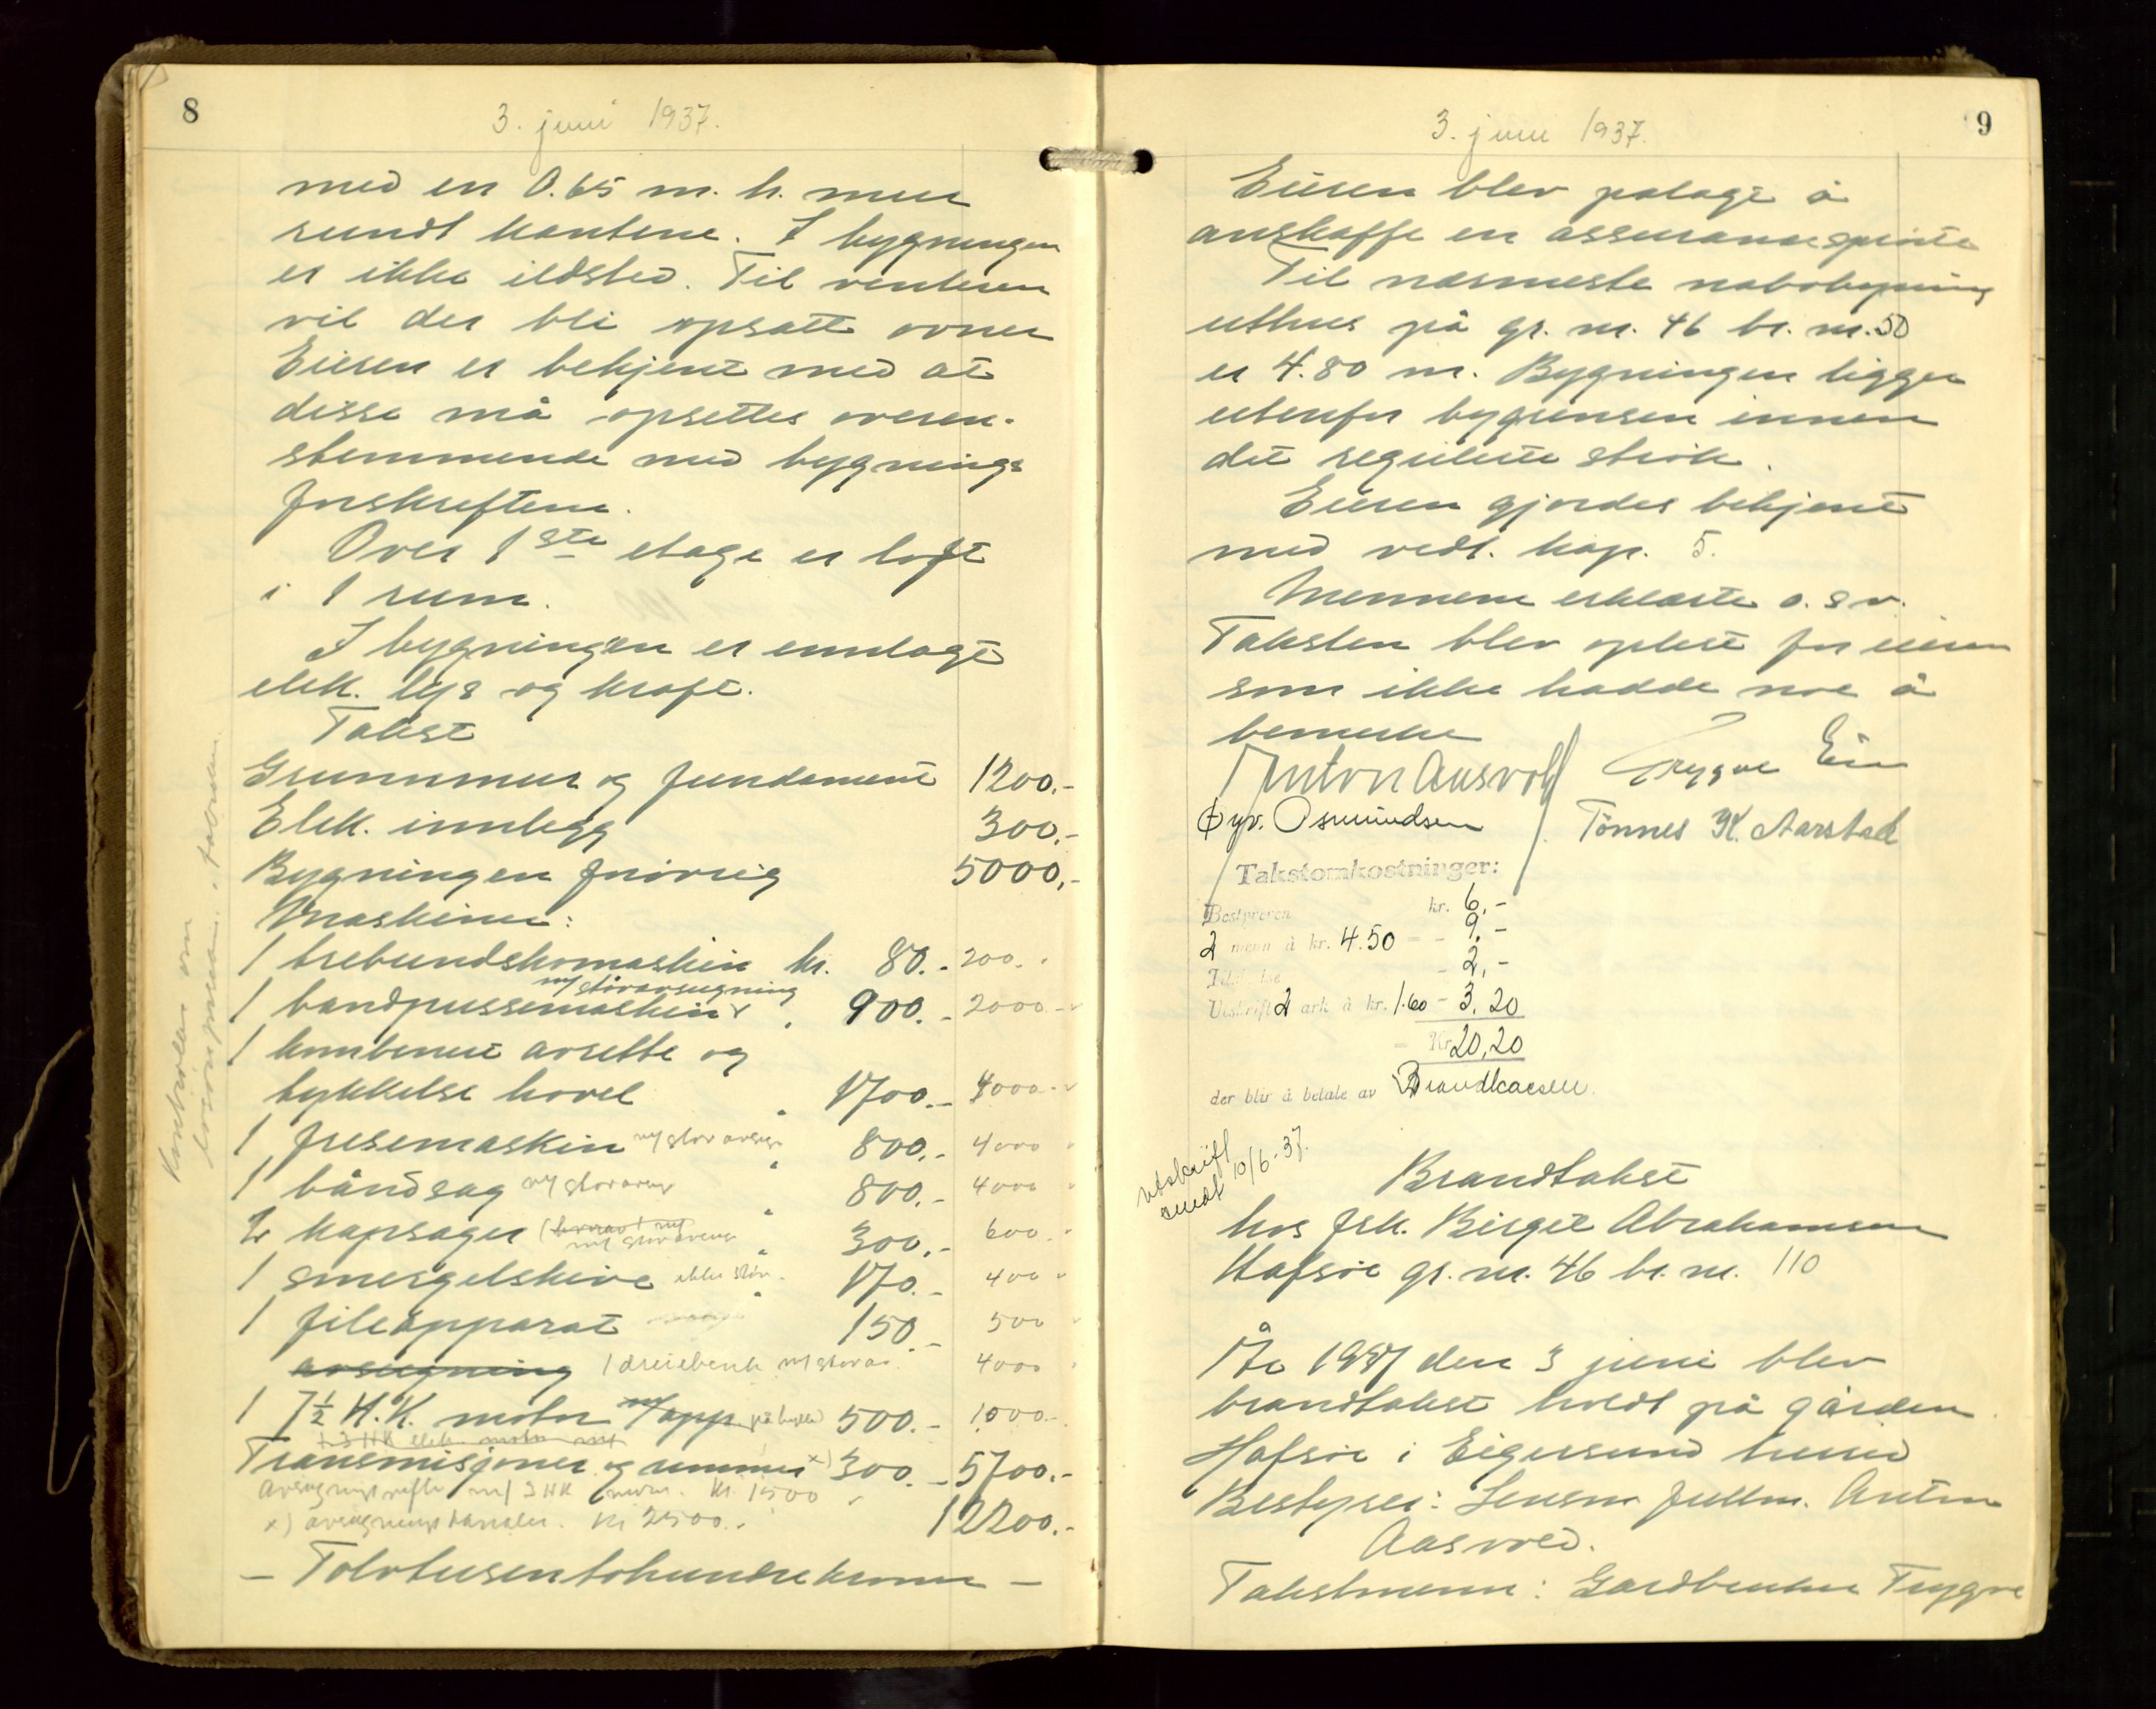 8
3. juni 1937.
med en 0.65 m. h. mur
rundt kantene. I bygningen
er ikke ildsted. Til vinteren
vil der bli opsatt ovner
Eieren er bekjent med at
disse må opsettes overen-
stemmende med bygnings
forskriftene.
Over 1ste etage er loft
i 1 rum.
I bygningen er innlagt
elek. lys og kraft.
Takst
Grunnmur og fundament 1200.-
Elek. innlegg 300.-
Bygningen forøvrig 5000.-
Maskiner:
1 trebundskomaskin kr. 80.- 200.
m/ støvavsugning
1 bandpussemaskin 900.- 2000.-
1 kombinert avrette og
tykkelse høvel 1700.- 4000.-
1 fresemaskin m/ støvavsug 800.- 4000
1 båndsag m/ støvavsug 800.- 4000
2 kapsager 300.- 600.
1 smergelskive ikke støv. 170.- 400
1 fileapparat 150.- 500
avsugning 1 dreiebenk m/ støvav. 4000
1 7½ H.K. motor m/ app. 500.- 1000.-
+ 3 HK elek. motor
Transmisjoner og remmer x) 300.- 5700.-
Avsugningsvifte m/ 3 HK motor. kr. 1500
x) avsugningskanaler. kr 2500.- 12200.-
- Tolvtusentohundrekroner -
Kontrollen om
9
3. juni 1937.
Eieren blev pålagt å
anskaffe en assuransesprøite
Til nærmeste nabobygning
uthus på gr. nr. 46 br. nr. 50
er 4.80 m. Bygningen ligger
utenfor bygrensen innen
det regulerte strøk.
Eieren gjordes bekjent
med vedt. kap. 5.
Mennene erklærte o.s.v.
Taksten blev oplest for eieren
som ikke hadde noe å
bemerke
Anton Aasvold Trygve Eie
Øyv. Osmundsen Tönnes K. Aarstad
Takstomkostninger:
Bestyreren kr. 6.-
2 menn à kr. 4.50 - 9.-
- 2,-
Utskrift 2 ark à kr. 1.60 - 3.20
= Kr. 20,20
der blir å betale av Brandkassen
Utskrift
sendt 10/6-37.
Brandtakst
hos frk. Birgit Abrahamsen
Hafsøe gr. nr. 46 br. nr. 110
År 1937 den 3 juni blev
brandtakst holdt på gården
Hafsøe i Eigersund herred
Bestyrer: Lensm. fullm. Anton
Aasvold.
Takstmenn: Gardbruker Trygve